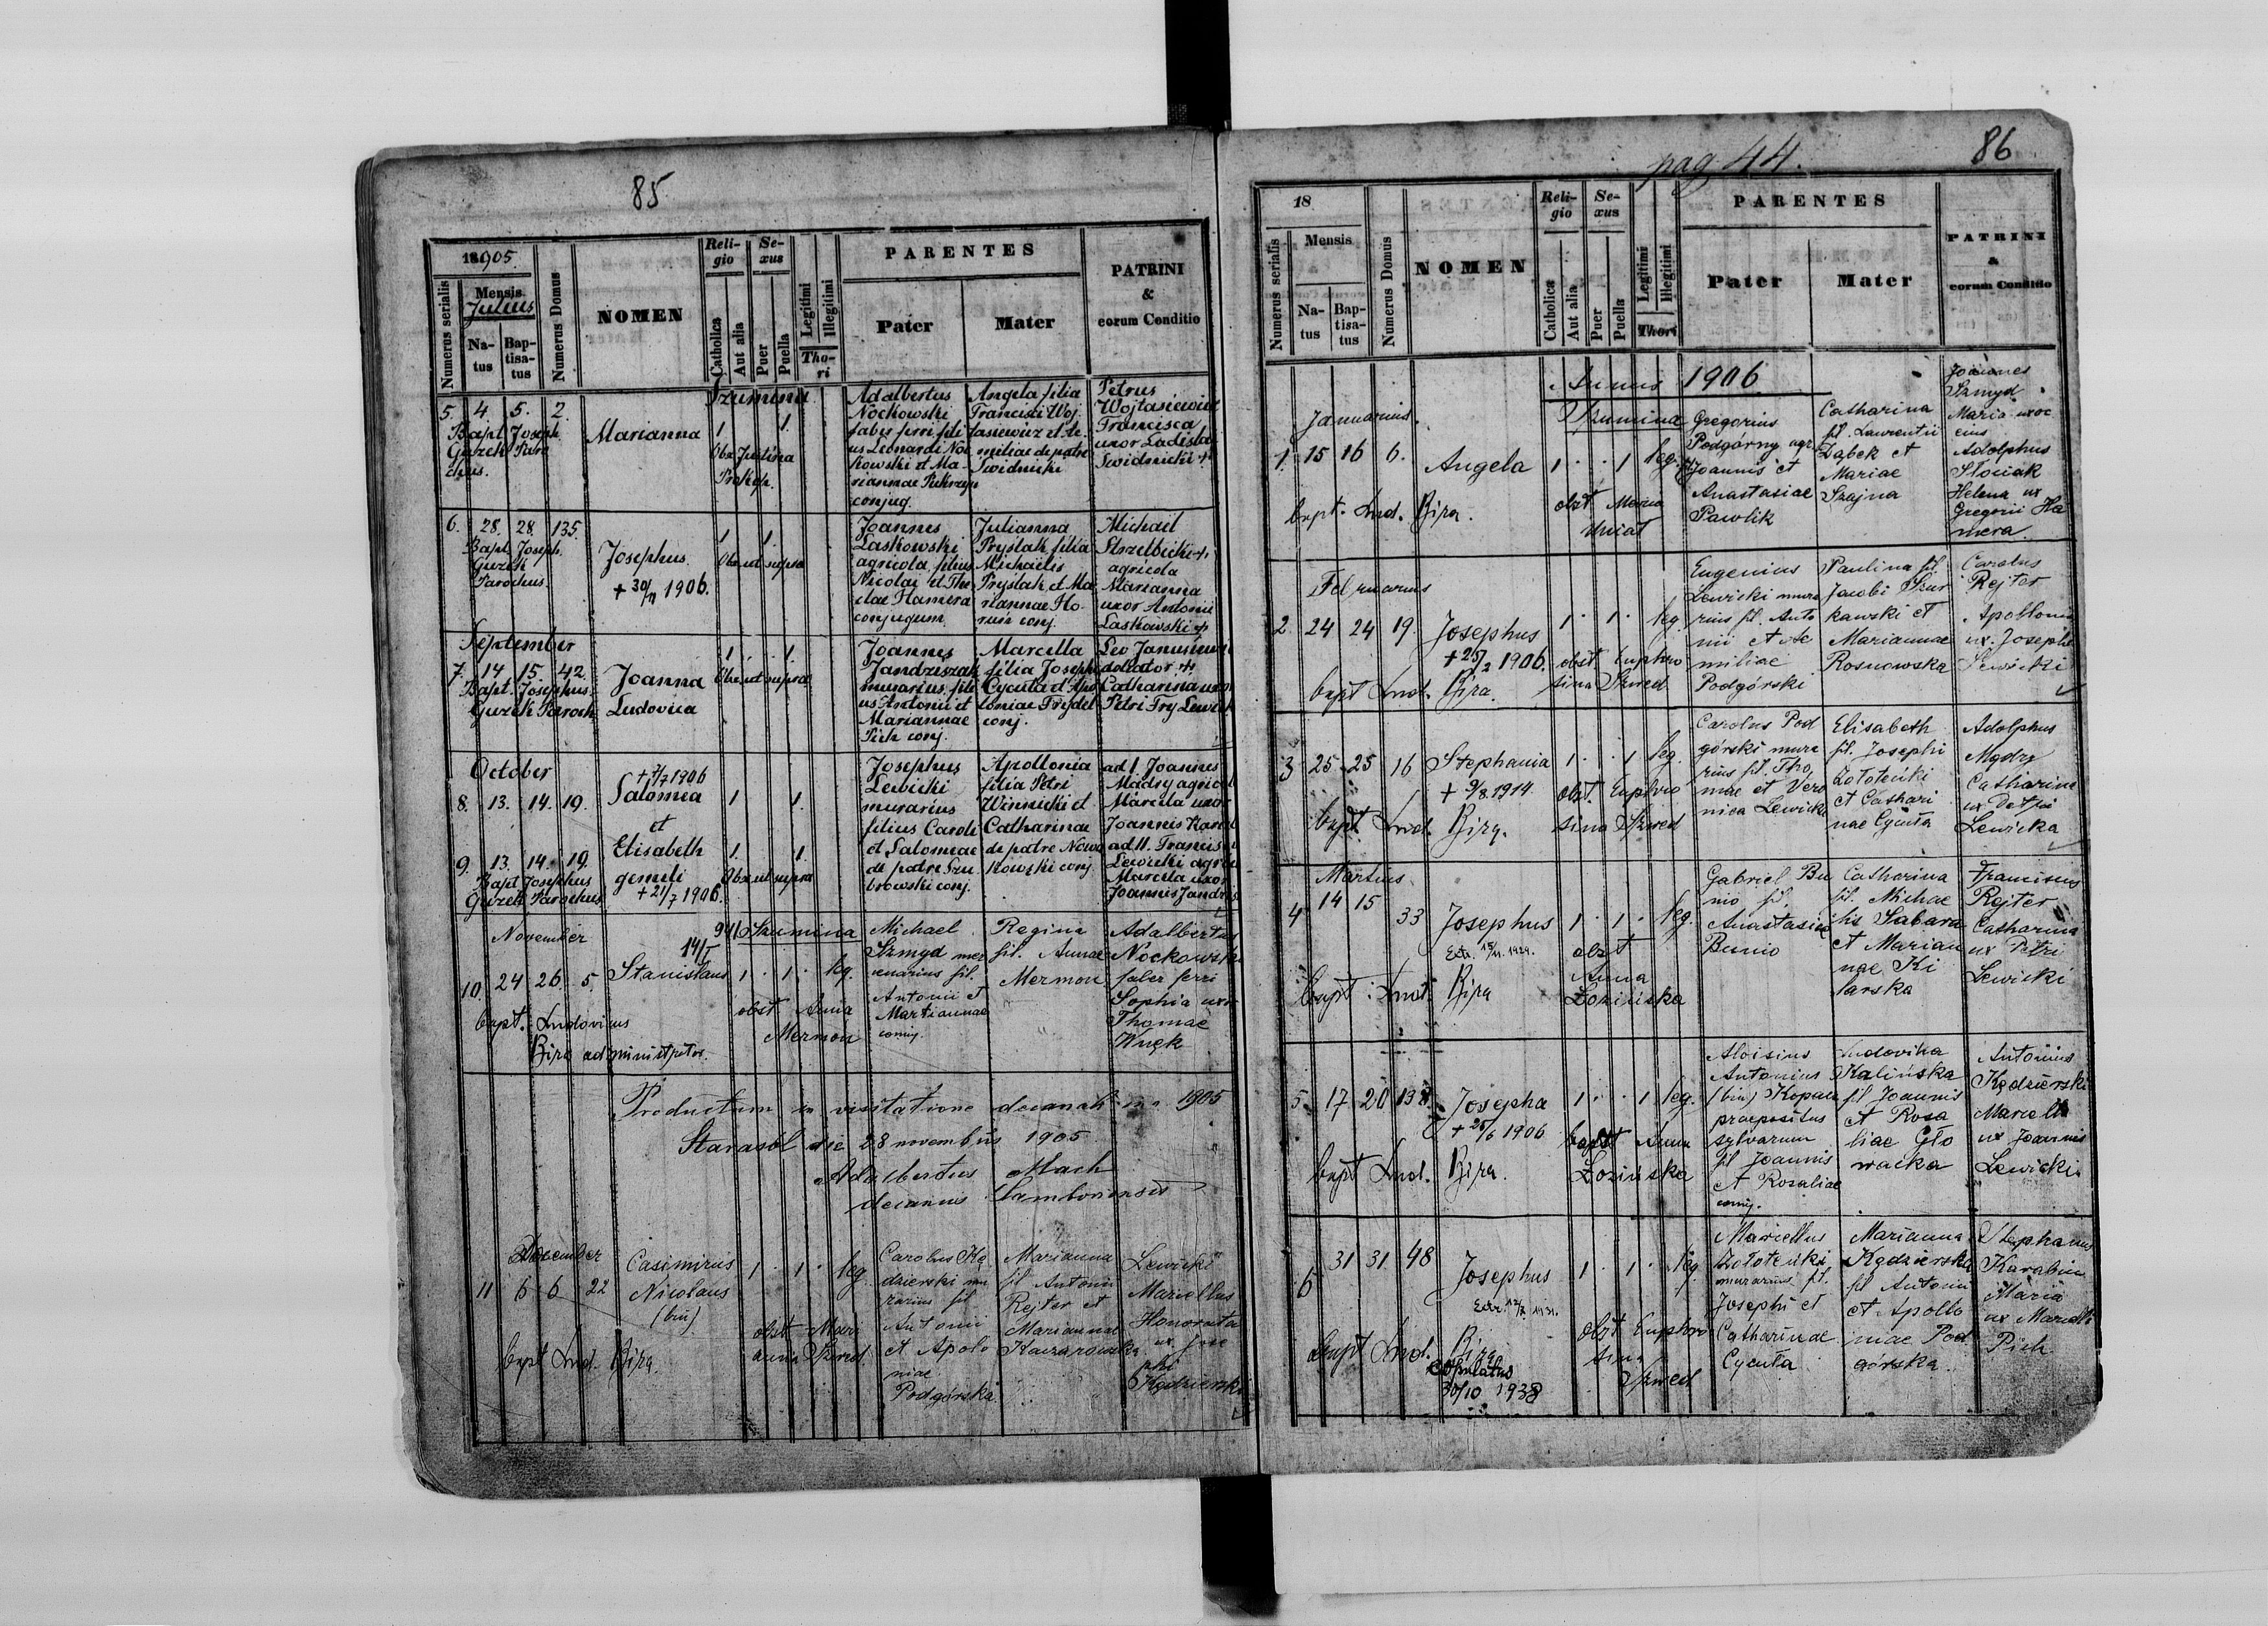 85
18905.
Numerus serialis
Mensis
Julius
Na-
tus
Bap-
tisa-
tus
Numerus Domus
NOMEN
Reli-
gio
Catholica
Aut alia
Se-
xus
Puer
Puella
Legitimi
Illegitimi
Tho-
ri
PARENTES
Pater
Mater
PATRINI
&
eorum Conditio
Szumina
5. 4 5. 2.
Bapt. Joseph
Guzek Paro
chus.
Marianna
1 1.
Obs. Justina
Prokop.
Adalbertus
Nockowski
faber ferri fili
us Leonardi Noc
kowski et Ma-
riannae Pietrzyk
conjug.
Angela filia
Francisci Woj
tasiewicz et Ae-
miliae de patre
Swidnicki
Petrus
Wojtasiewicz
Francisca
uxor Ladisla
Swidnicki +
6. 28. 28. 135.
Bapt. Joseph.
Guzek
Parochus.
Josephus
+ 30/ 1906.
1 1.
Obs. ut supra
Joannes
Laskowski
agricola, filius
Nicolai et The
clae Hamera
conjugum.
Julianna
Pryslak filia
Michaelis
Pryslak et Ma
riannae Ho-
conj.
Michaël
Strzelbicki +
agricola
Marianna
uxor Antonii
Laskowski +
September
7. 14 15. 42.
Bapt. Josephus
Guzek Paroch
Joanna
Ludovica
1. 1.
Obs. ut supra
Joannes
Jandziszak
murarius fili
us Antonii et
Mariannae
Pich conj.
Marcella
filia Josephi
Cycuta et Apo
loniae Frydel
conj.
Leo
doleator +
Catharina uxo
Petri Fry Lewick
October
8. 13. 14. 19.
+ 7/7 1906
Salomea
et
Elisabeth
gemeli
+ 21/7 1906.
1 1.
9. 13. 14. 19.
Bapt. Josephus
Guzek Parochus
1. 1.
Obs. ut supra
Josephus
Lewicki
murarius
filius Caroli
et Salomeae
de patre Szu
browski conj.
Apollonia
filia Petri
Winnicki et
Catharinae
de patre Nowa
kowski conj.
ad I. Joannes
Mądry agricol
Marcela uxor
Joannis
ad II. Francis
Lewicki agri
Marcela uxor
Joannis Jandzis
November
941 Szumina
10. 24 26. 5.
14/I
Stanislaus
1 . 1 . leg.
bapt. Ludovicus
Bira administrator.
obst Anna
Mermon
Michael
Szmyd mer
cenarius fil.
Antonii et
Mariannae
coniug.
Regina
fil. Annae
Mermon
Adalbertus
Nockowski
faber ferri
Sophia uxor
Thomae
Wnęk
Productum in visitatione decanali in a. 1905
Starasól die 28 novembris 1905
Adalbertus Mach
decanus Samboriensis
December
11 6 6 22
Casimirus
Nicolaus
(bin)
1 . 1 . leg
bapt Lud. Bira
obst Mari
anna Szwed
Carolus Kę
dzierski mu
rarius fil
Antonii
et Apolo
niae
Podgórska.
Marianna
fil Antonii
Rejter et
Mariannae
Kaczarowska
Lewicki
Marcellus
Honorata
ux. Jose
phi
Kędzierski
pag 44.
86
18
Numerus serialis
Mensis
Na-
tus
Bap-
tisa-
tus
Numerus Domus
NOMEN
Reli-
gio
Catholica
Aut alia
Se-
xus
Puer
Puella
Legitimi
Illegitimi
Thori
PARENTES
Pater
Mater
PATRINI
&
eorum Conditio
Annus 1906
Januarius.
Szumina
1. 15 16 6.
Angela
1 . . 1 leg.
bapt. Lud. Bira.
obst Maria
Gregorius
Podgórny agr.
fil Joannis et
Anastasiae
Pawlik
Catharina
fil. Laurentii
Dąbek et
Mariae
Szajna
Joannes
Szmyd
Maria uxor
eius
Adolphus
Słociak
Helena ux
Gregorii Ha
mera.
Februarius
2. 24 24 19.
Josephus
+ 25/2 1906.
1 . 1 . leg.
bapt Lud. Bira.
obst Euphro
sina Szwed
Eugenius
Lewicki mura
rius fil. Anto
nii et Ae
miliae
Podgórski
Paulina fil
Jacobi Szur
kowski et
Mariannae
Rosnowska
Carolus
Rejter
Apollonia
ux. Josephi
Lewicki
3 25 25 16
Stephania
+ 9/8 1914
1 . . 1 leg.
bapt. Lud. Bira.
obst. Euphro
sina Szwed
Carolus Pod
górski mura
rius fil. Tho
mae et Vero
nica Lewicka
Elisabeth
fil. Josephi
Zołoteńki
et Cathari
nae Cycuta
Adolphus
Mądry
Catharina
ux Petri
Lewicka
Martius
4 14 15 33
Josephus
Extr. 15/11. 1929.
1 . 1 . leg.
bapt. Lud. Bira
obst
Anna
Łozińska
Gabriel Bu
nio fil.
Anastasiae
Bunio
Catharina
fil. Michae
lis Sabara
et Marian
nae Ki
larska
Franciscus
Rejter
Catharina
ux Petri
Lewicki
5. 17 20 138.
Josepha
+ 25/6 1906
1 . . 1 leg.
bapt Lud. Bira.
obst Anna
Łozińska
Aloisius
Antonius
(bin) Kopacz
praepositus
sylvarum
fil Joannis
et Rosaliae
coniug.
Ludovika
Kalińska
fil Joannis
et Rosa
liae Gło
wacka
Antonius
Kędzierski
Marcella
ux Joannis
Lewicki
6 31 31. 48
Josephus
Extr. 12/8 1931.
1 . 1 . leg.
bapt Lud. Bira
copulatus
30/10 1938
obst Euphro
sina
Szwed
Marcellus
Zołoteńki
murarius fil.
Josephi et
Catharinae
Cycuta
Marianna
Kędzierska
fil Antonii
et Apollo
niae Pod
górska
Stephanus
Karabin
Maria
ux Marcelli
Pich